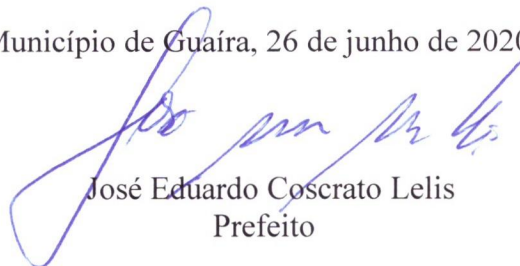 Município de Guaíra, 26 de junho de 2020
José Eduardo Coscrato Lelis
Prefeito